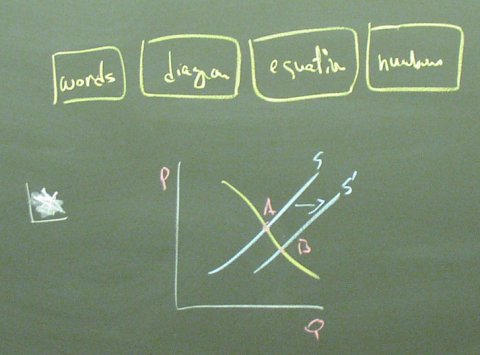 words diagram equation numbers
P
S
S'
A
B
Q